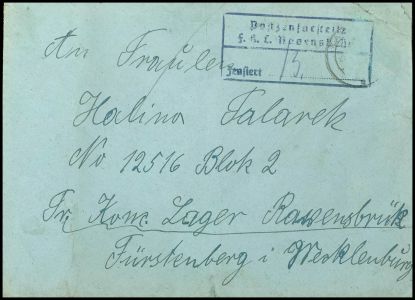 Postzensurstelle
F. K. L. Ravensbrück
Zensiert
An Fraulein
Halina Talarek
No 12516 Blok 2
Fr. Konz. Lager Rawensbrük
Fürstenberg i Mecklenburg